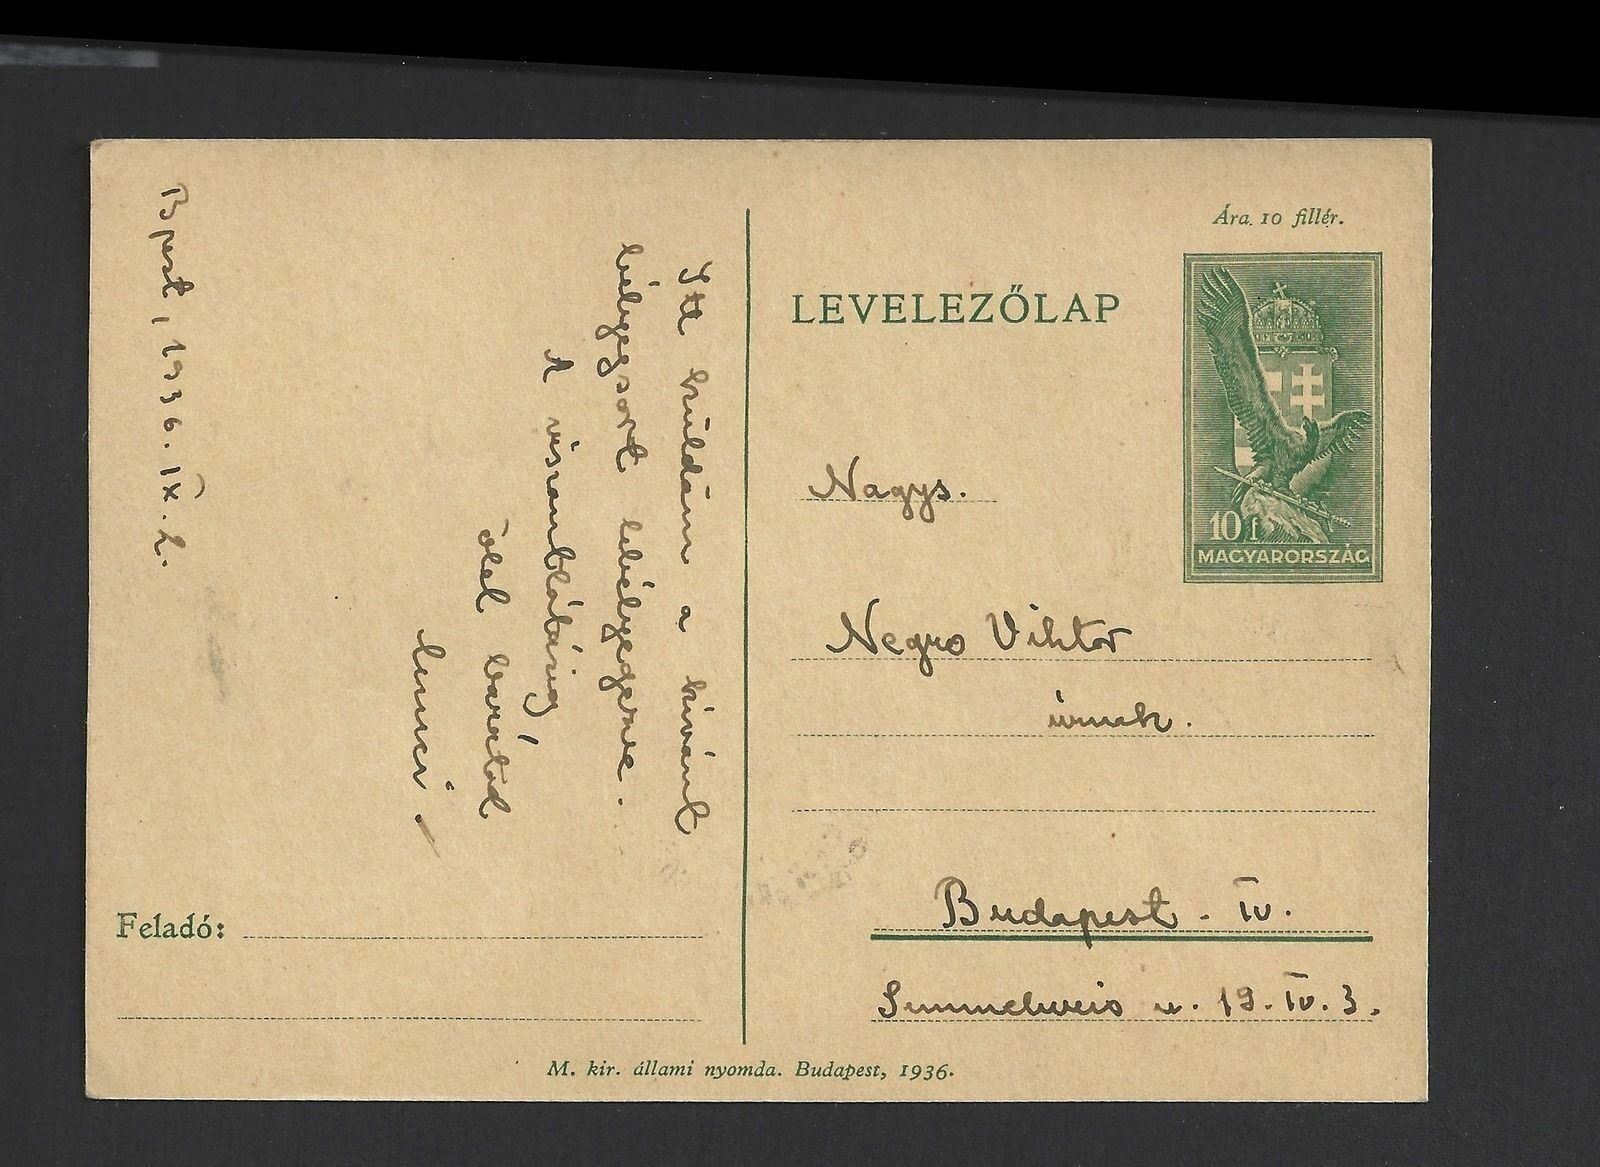 Bpest, 1936. IX. 2.
Itt küldöm a kívánt
bélyegsort lebélyegezve.
A viszontlátásig
ölel barátod
Feladó:
Ára 10 fillér.
LEVELEZŐLAP
10 f
MAGYARORSZÁG
Nagys.
Negro Viktor
úrnak.
Budapest - IV.
Semmelweis u. 19. IV. 3.
M. kir. állami nyomda. Budapest, 1936.